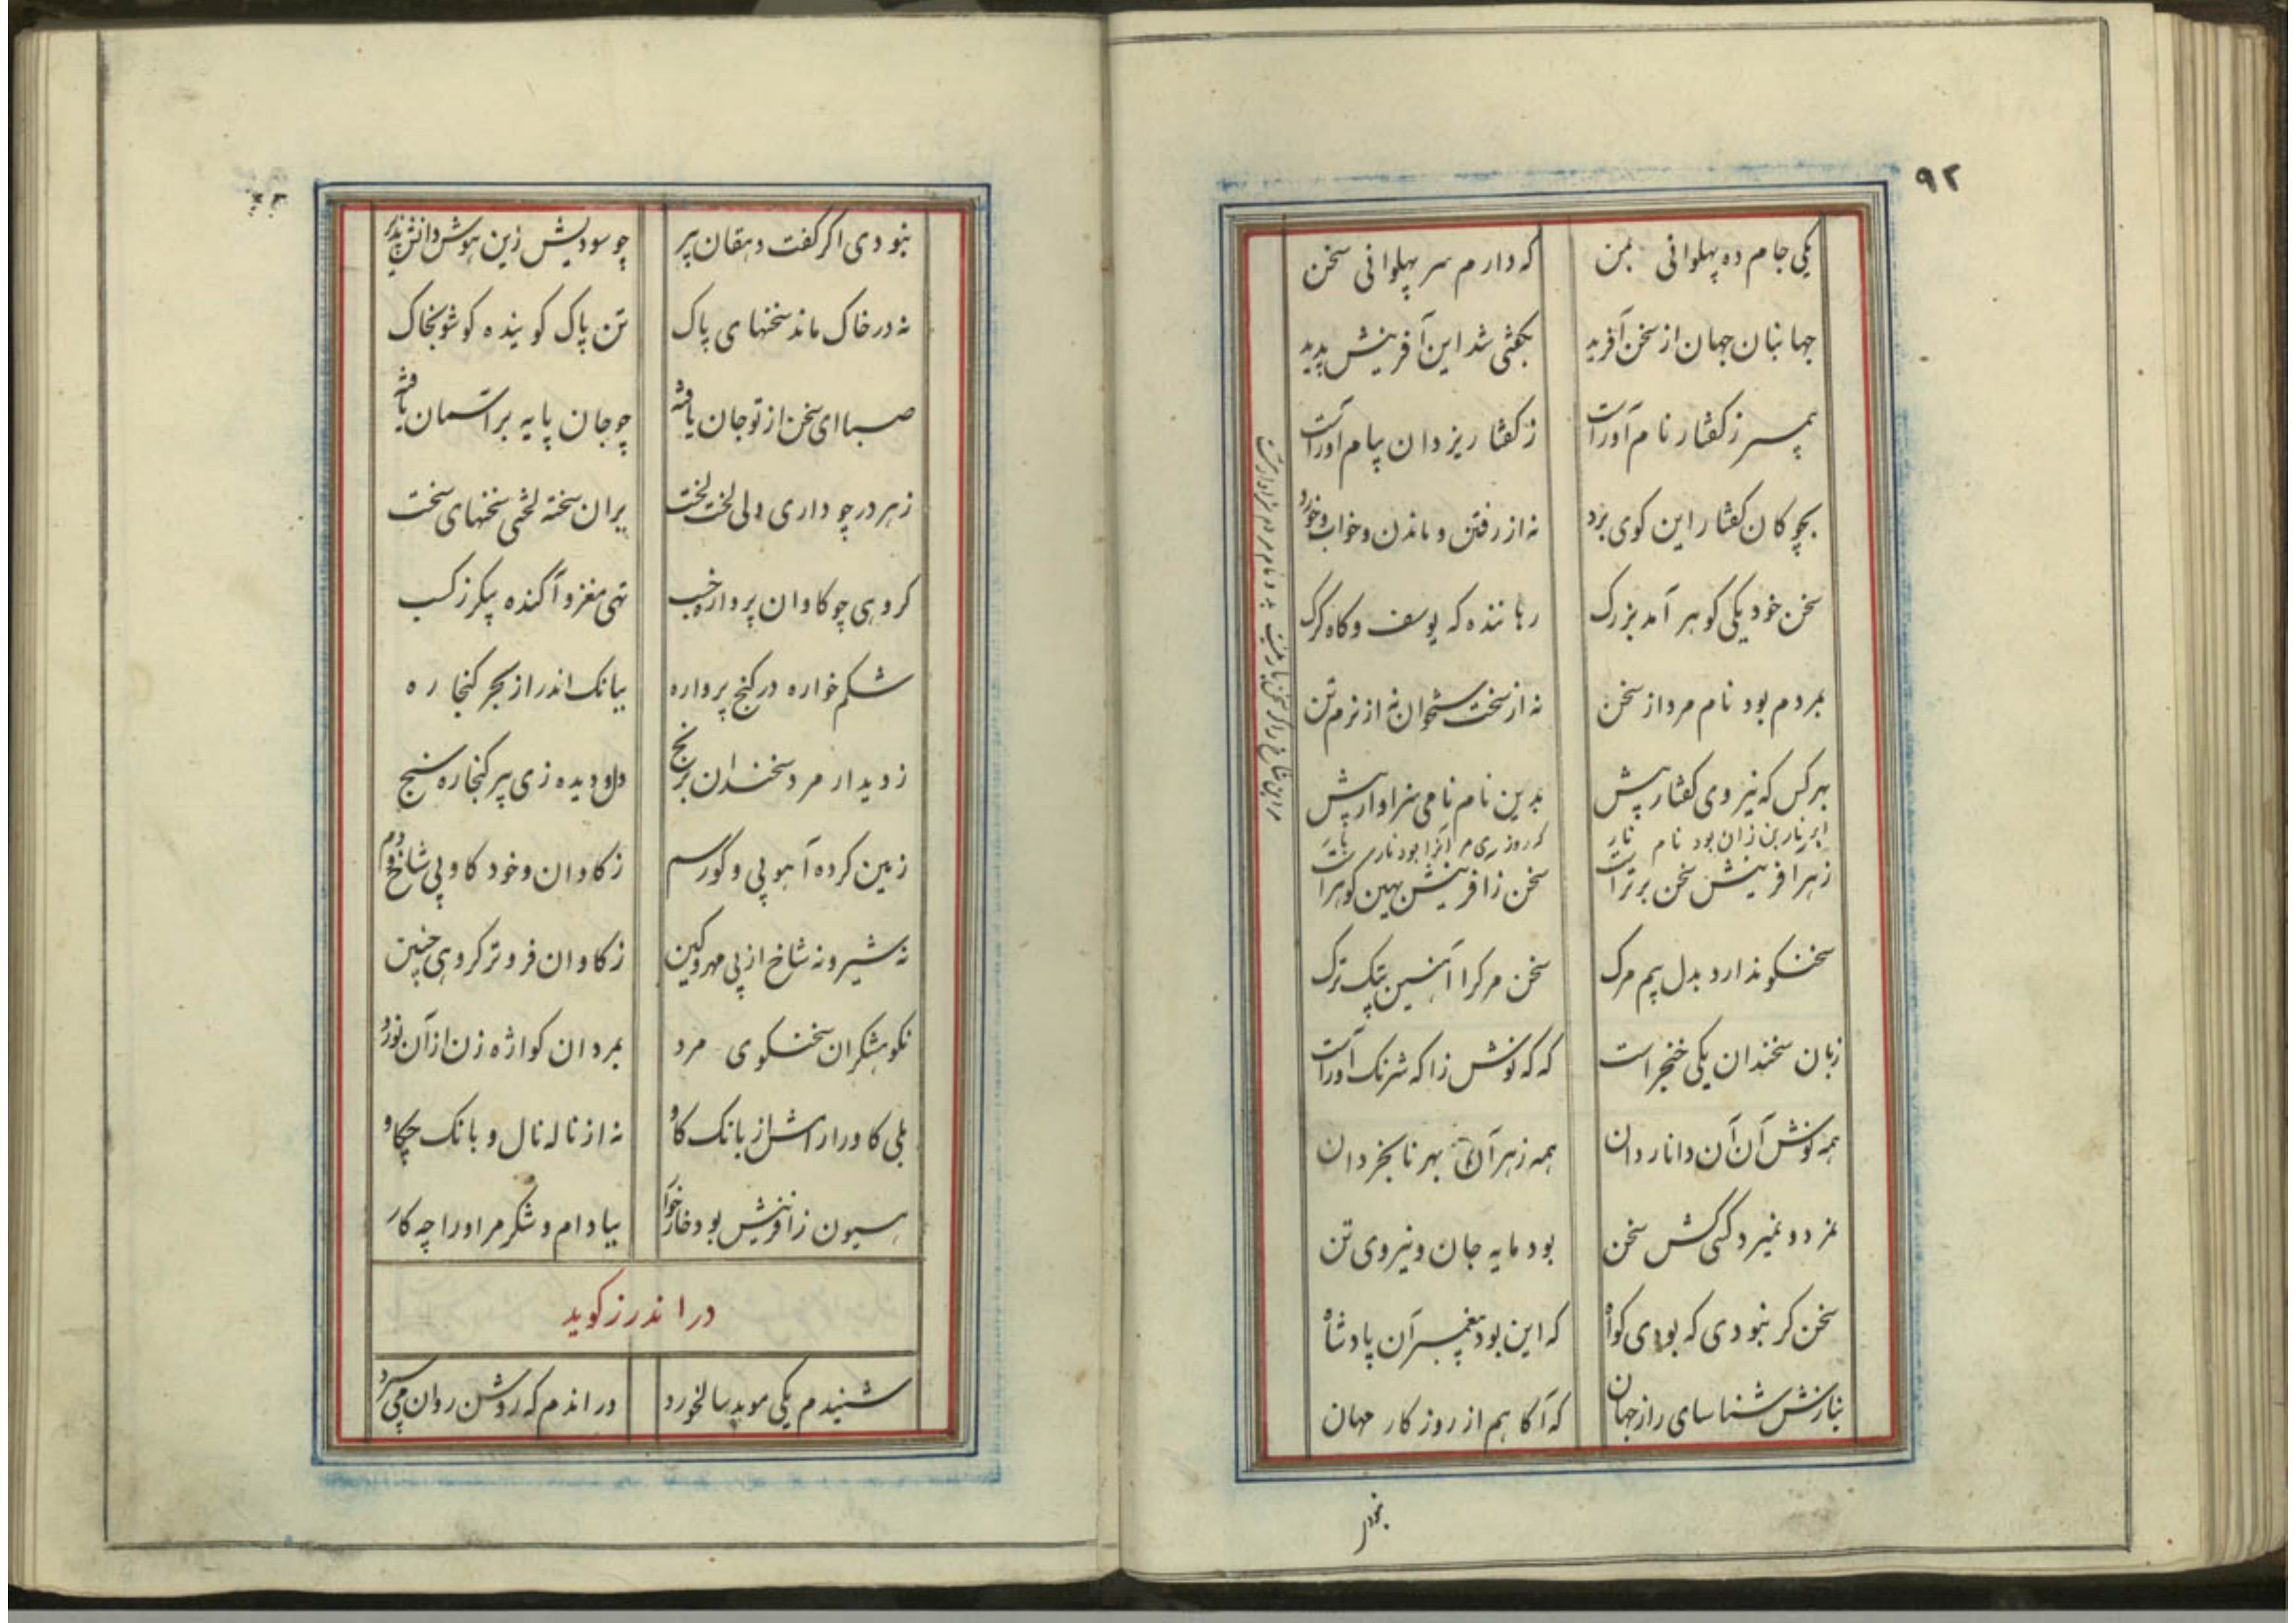 ۹۲
یکی جام ده پهلوانی بمن که دارم سر پهلوانی سخن
جهانبان جهان از سخن آفرید بگفتی شد این آفرینش پدید
پیمبر ز گفتار نام آور است ز گفتار یزدان پیام آور است
بچوکان گفتار این کوی برد نه از رفتن و ماندن و خواب و خورد
سخن خود یکی کوهر آمد بزرک رهاننده که یوسف و کاه کرک
بمردم بود نام مرد از سخن نه از سخت ستخوان نه از نرم تن
بهرکس که نیروی گفتار بیش بدین نام نامی سزاوار بیش
نار بن زان بود نام نار که روزی بود نار
ز هر آفرینش سخن برتر است سخن زافرینش بهین کوهر است
سخنکو ندارد بدل بیم مرک سخن مرک را آهنین ترک
زبان سخندان یکی خنجر است که که نوش زا که شرنک آور است
همه نوش آن آن دانا ردان همه زهر آن بهر نابخردان
نمرد و نمیرد کسی کش سخن بود مایه جان و نیروی تن
سخن کر نبودی که بودی کواه که این بود پیغمبر آن پادشاه
بنازش شناسای راز جهان که آکاهم از روزکار مهان
نبودی
نبودی اکر گفت دهقان پیر چو سودیش زین هوش دانش پذیر
نه در خاک ماند سخنهای پاک تن پاک کوینده کو شو بخاک
صبا ای سخن از تو جان یافته چو جان پایه بر آسمان یافته
ز هر در چو داری دلی لخت لخت بران سخته لختی سخنهای سخت
کروهی چو کاوان پرواره خسب تهی مغز و آکنده پیکر ز کسب
شکم خواره در کنج پرواره ببانک اندر از بحر کنجاره
ز دیدار مرد سخندان برنج دل و دیده زی پیر کنجاره سنج
زمین کرده آهو پی و کور سم ز کاوان و خود کاو بی شاخ و دم
نه شیر و نه شاخ از پی مهر و کین ز کاوان فروتر کروهی چنین
نکوهشکران سخنکوی مرد بمردان کواژه زن از آن نورد
بلی کاو را رامش از بانک کاو نه از ناله نال و بانک چکاو
هیون زافرینش بود خار خوار ببادام و شکر مر او را چه کار
در اندرز کوید
شنیدم یکی موبد سالخورد در اندم که روشن روان می سپرد